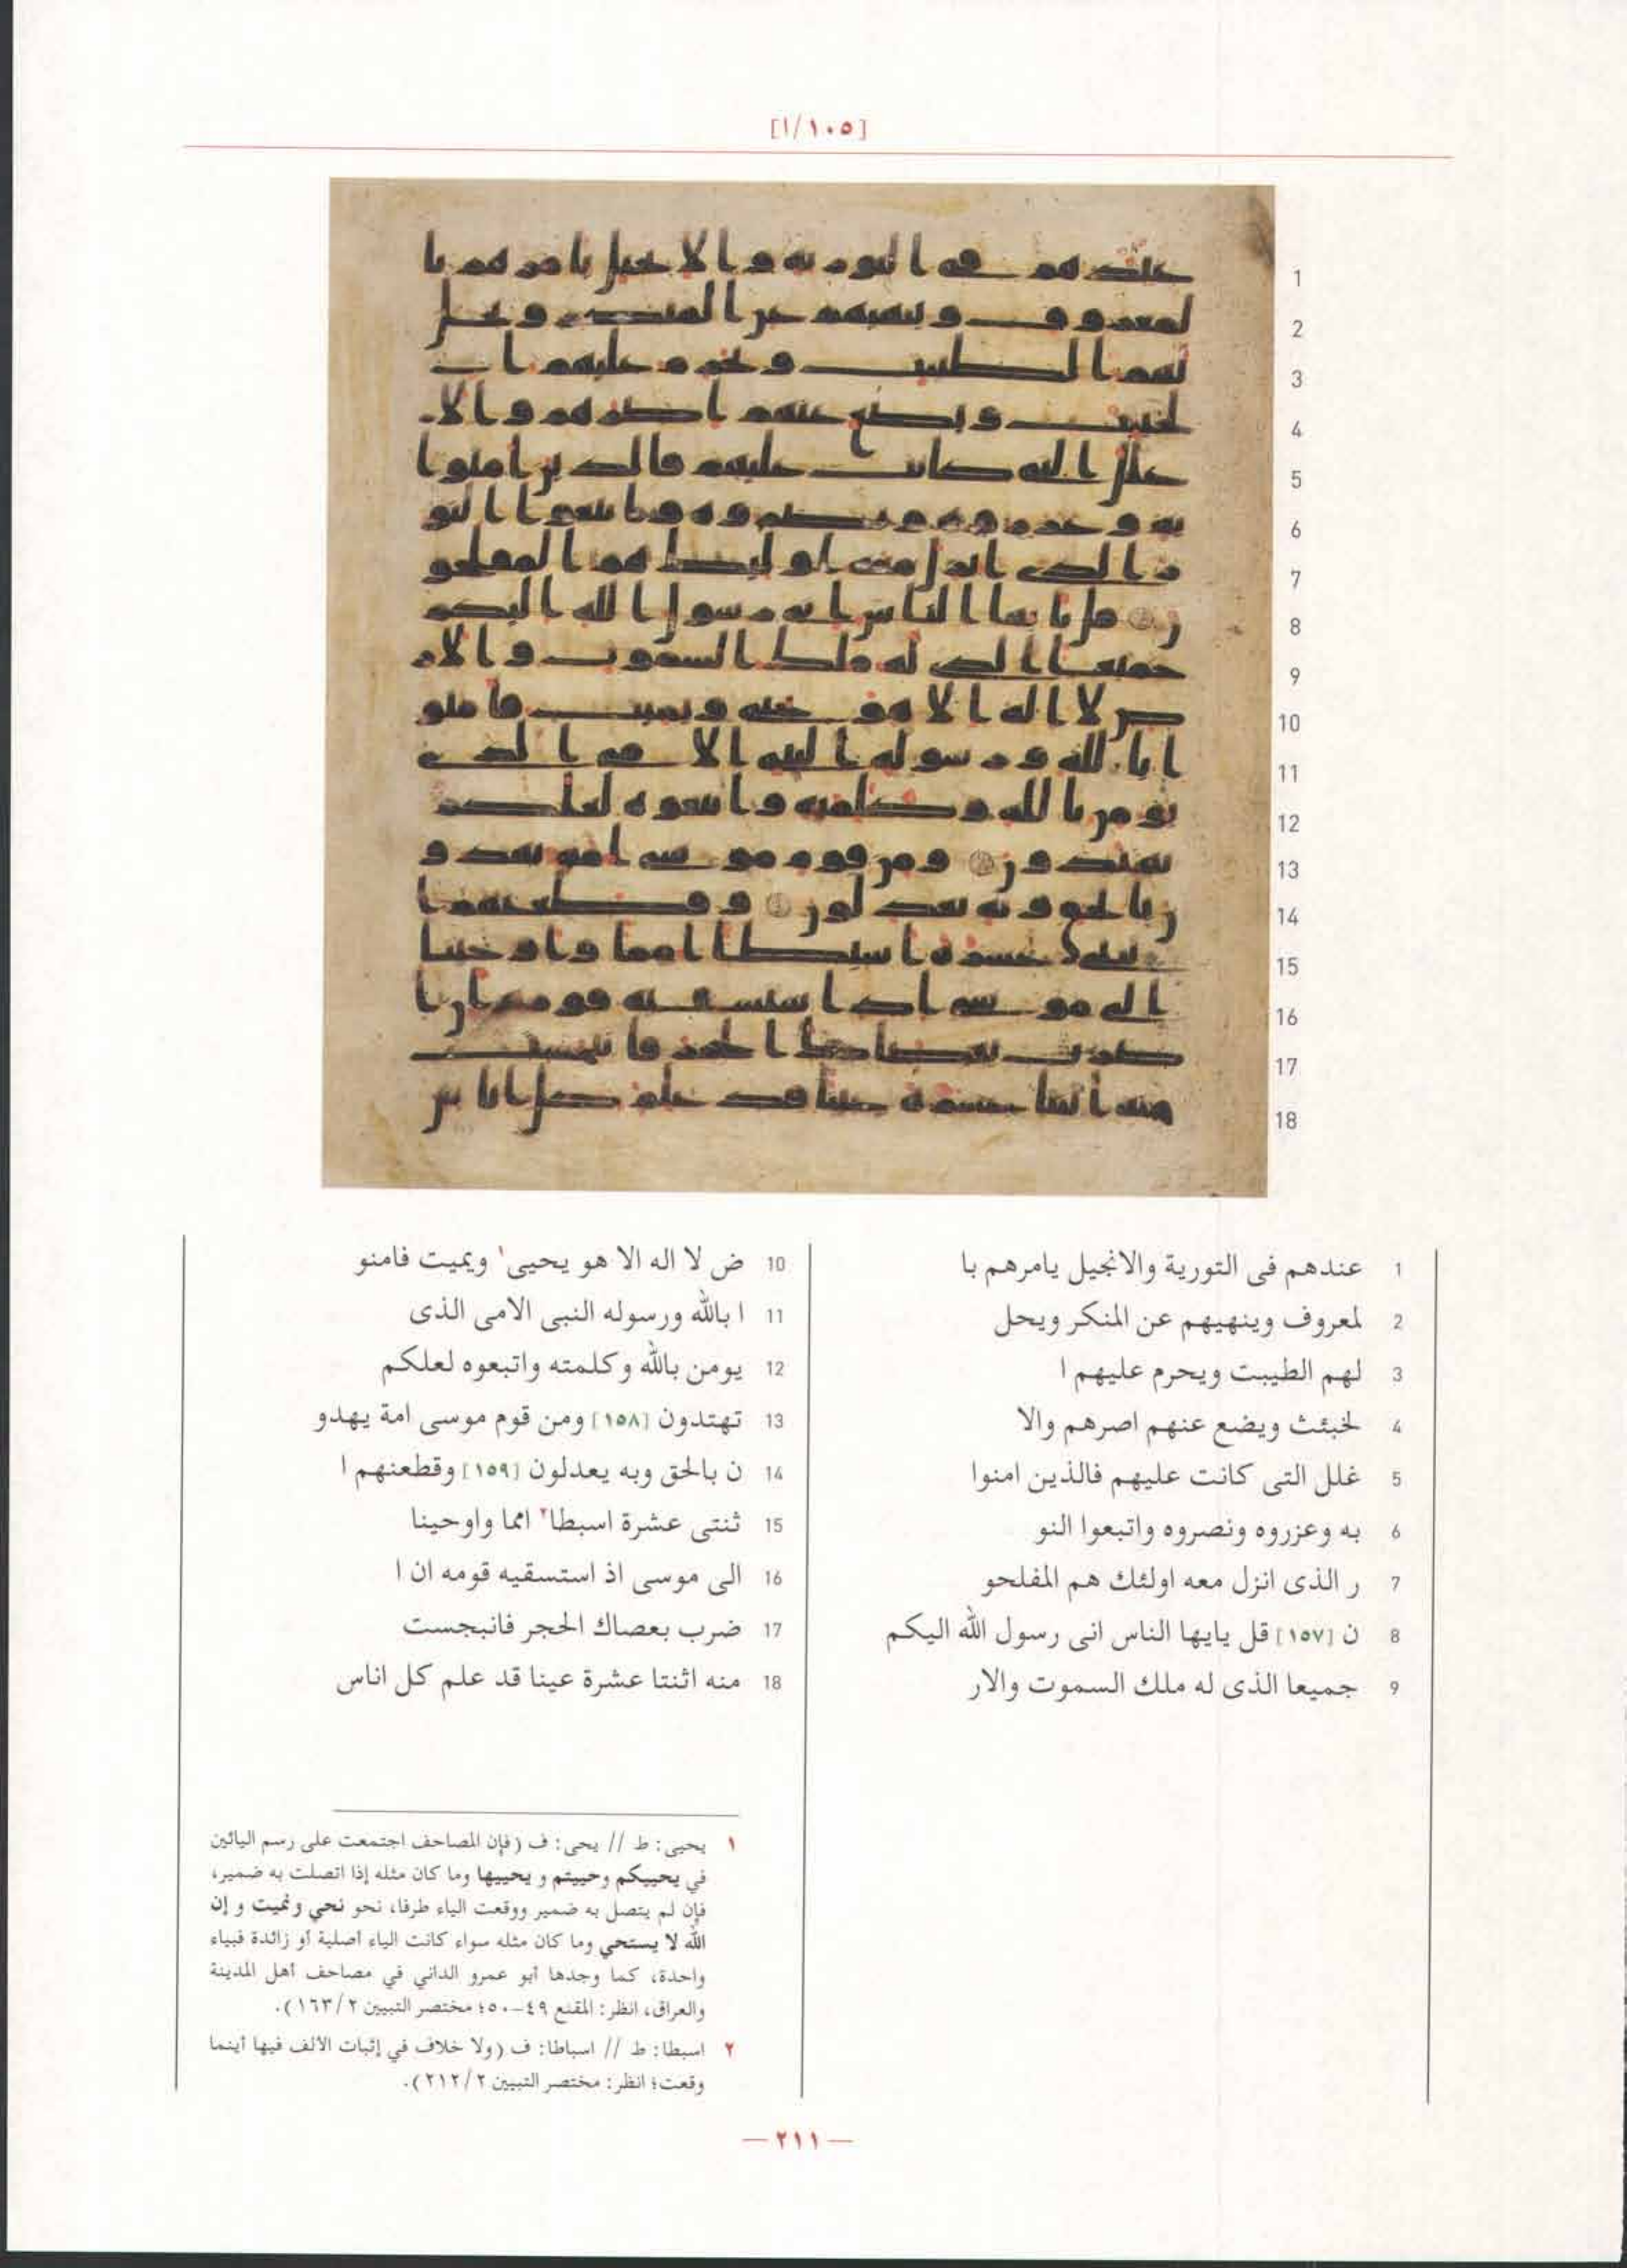 [١٠٥/ا]
1
2
3
4
5
6
7
8
9
10
11
12
13
14
15
16
17
18
1 عندهم فى التورية والانجيل يامرهم با
2 لمعروف وينهيهم عن المنكر ويحل
3 لهم الطيبت ويحرم عليهم ا
4 لخبئث ويضع عنهم اصرهم والا
5 غلل التى كانت عليهم فالذين امنوا
6 به وعزروه ونصروه واتبعوا النو
7 ر الذى انزل معه اولئك هم المفلحو
8 ن [١٥٧] قل يايها الناس انى رسول الله اليكم
9 جميعا الذى له ملك السموت والار
10 ض لا اله الا هو يحيى١ ويميت فامنو
11 ا بالله ورسوله النبى الامى الذى
12 يومن بالله وكلمته واتبعوه لعلكم
13 تهتدون [١٥٨] ومن قوم موسى امة يهدو
14 ن بالحق وبه يعدلون [١٥٩] وقطعنهم ا
15 ثنتى عشرة اسبطا٢ امما واوحينا
16 الى موسى اذ استسقيه قومه ان ا
17 ضرب بعصاك الحجر فانبجست
18 منه اثنتا عشرة عينا قد علم كل اناس
١ يحيى: ط // يحى: ف (فإن المصاحف اجتمعت على رسم اليائين
في يحييكم وحييتم و يحييها وما كان مثله إذا اتصلت به ضمير،
فإن لم يتصل به ضمير ووقعت الياء طرفا، نحو نحي ونميت و إن
الله لا يستحي وما كان مثله سواء كانت الياء أصلية أو زائدة فبياء
واحدة، كما وجدها أبو عمرو الداني في مصاحف أهل المدينة
والعراق، انظر: المقنع ٤٩-٥٠؛ مختصر التبيين ١٦٣/٢).
٢ اسبطا: ط // اسباطا: ف (ولا خلاف في إثبات الألف فيها أينما
وقعت؛ انظر: مختصر التبيين ٢١٢/٢).
— ٢١١ —